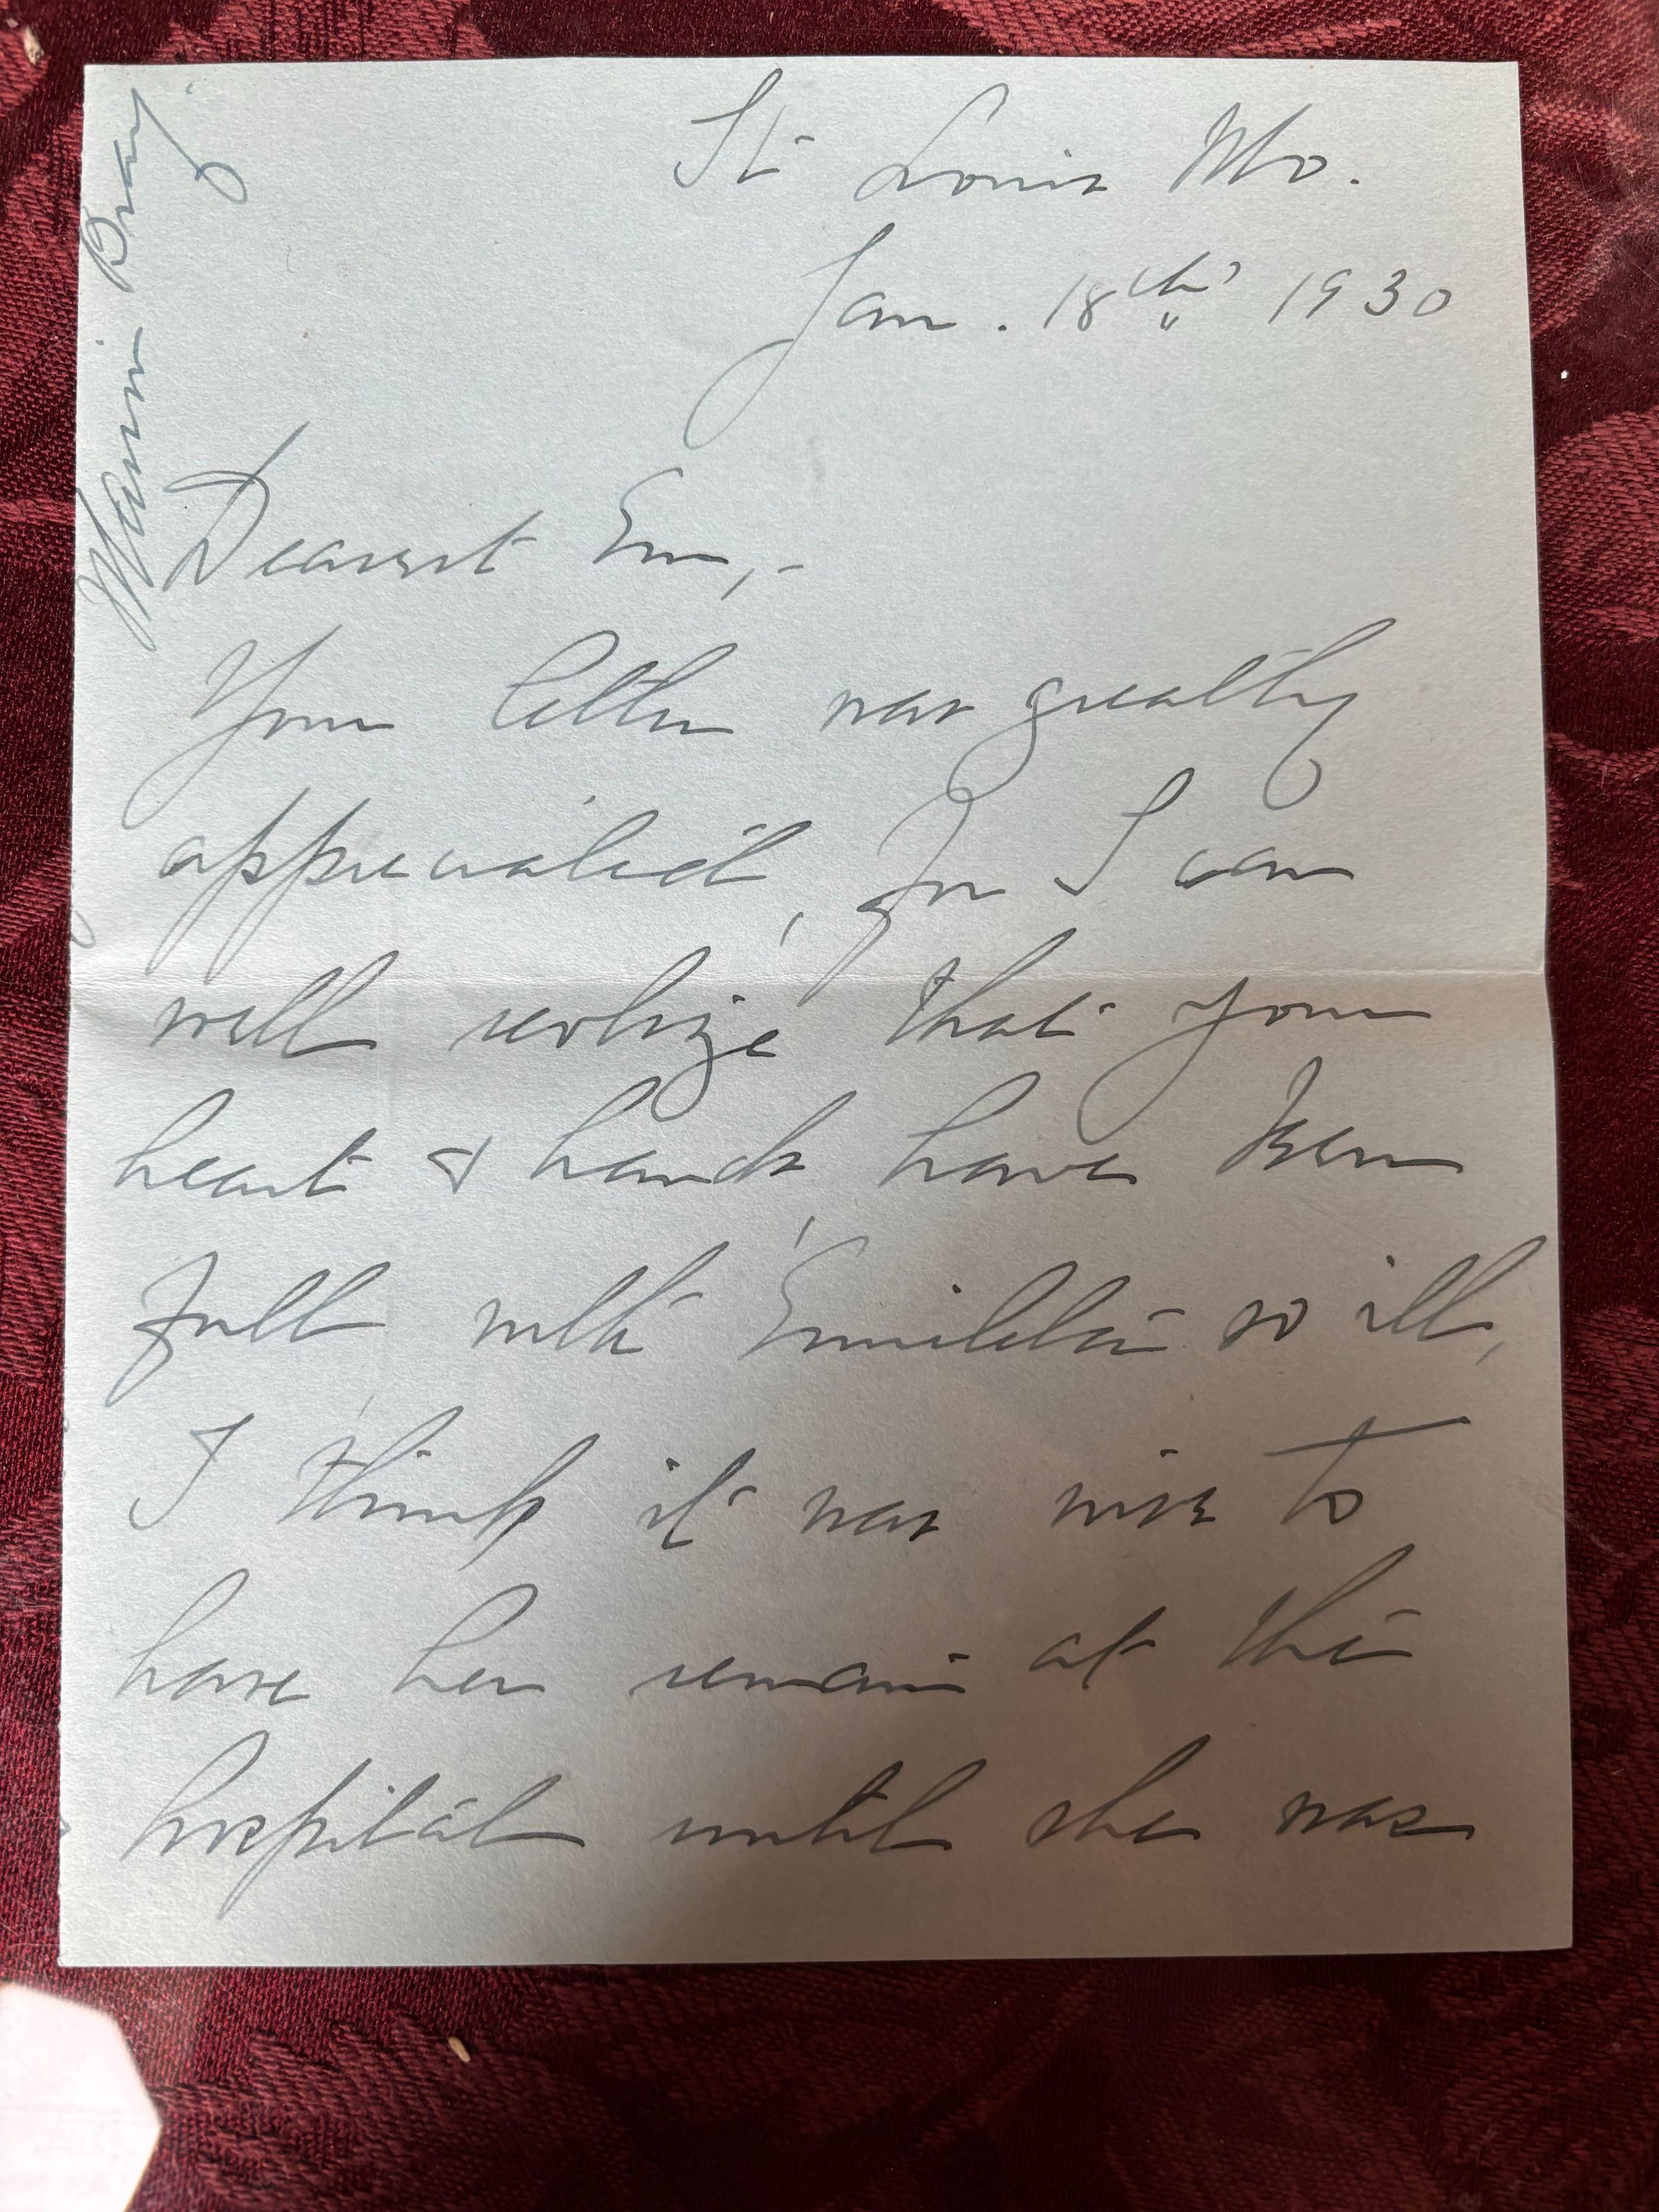 St Louis Mo.
Jan. 18th 1930
Dearest Em,-
Your letter was greatly
appreciated, for I can
well realize that your
heart & hands have been
full with Emileta so ill,
I think it was wise to
have her remain at the
hospital until she was